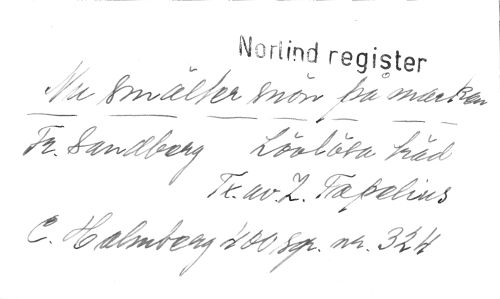 Norlind register
Nu smälter snön på marken
Fr. Sandberg Lövlösa träd
Tx. av. Z. Topelius
C. Holmberg 400 sgr. nr. 324